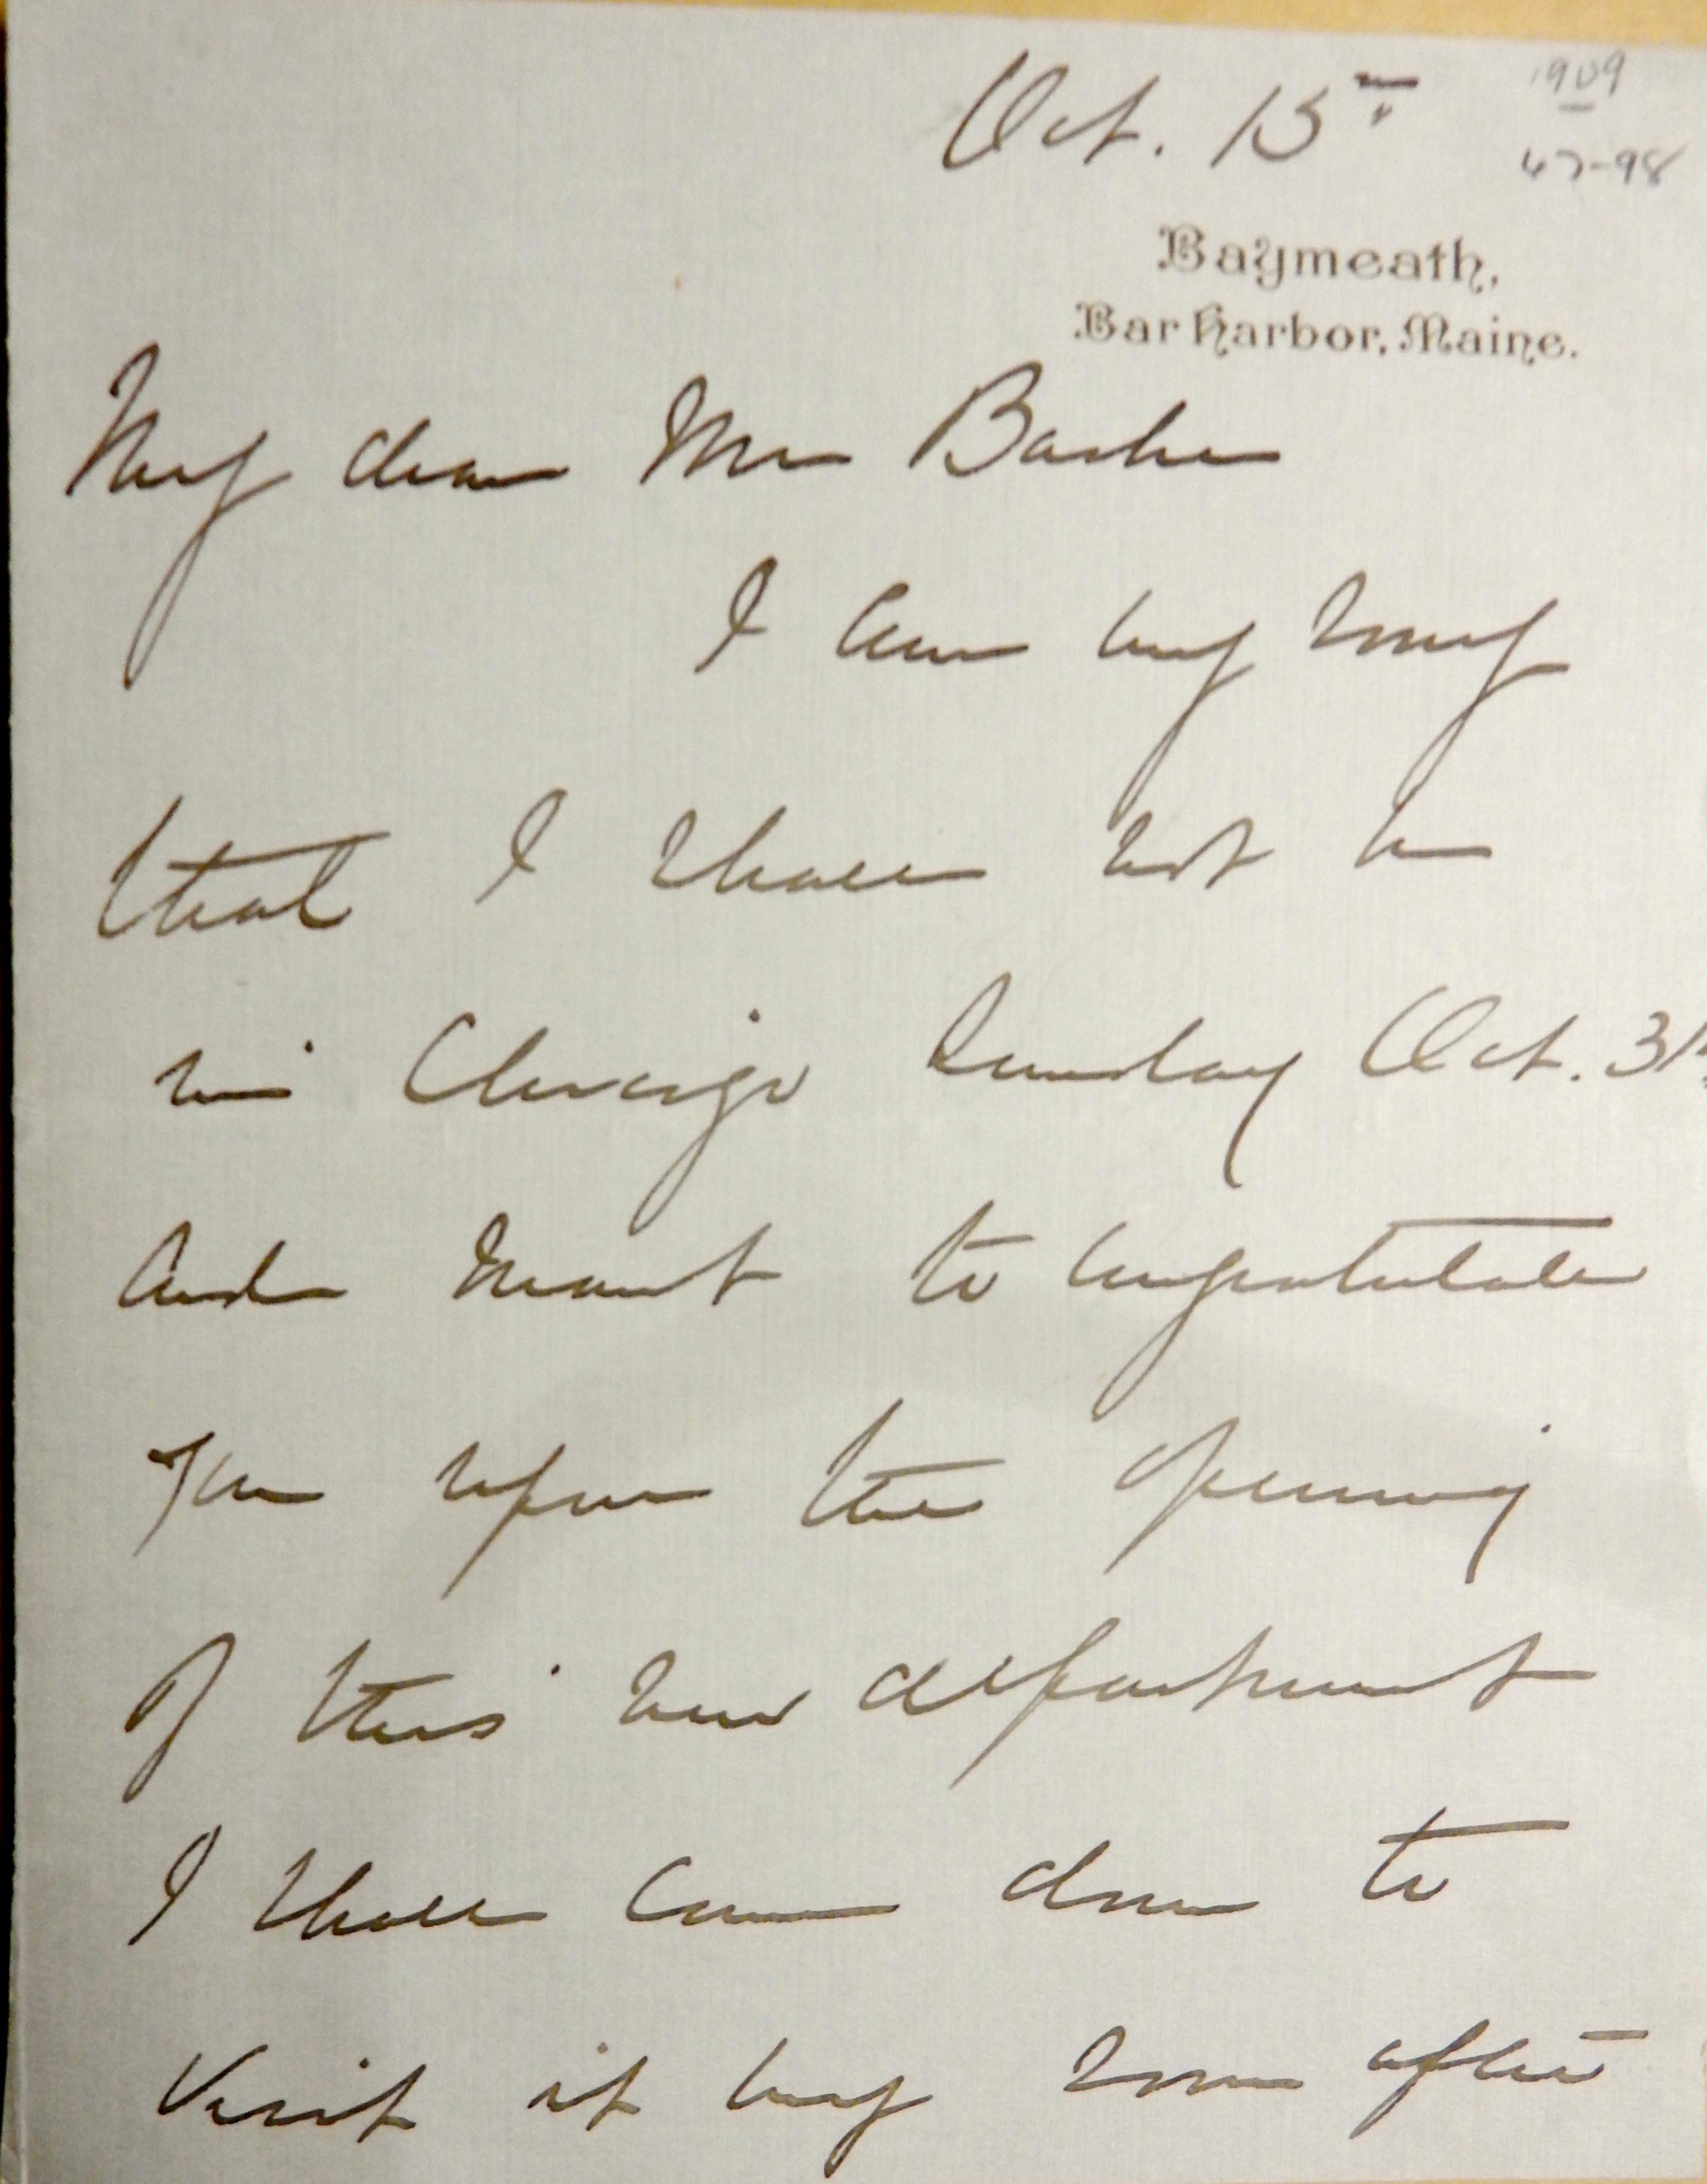 Oct. 15th
1909
47-98
Baymeath,
Bar Harbor, Maine.
My dear Mr
I am very sorry
that I shall not be
in Chicago Sunday Oct. 31st
and want to congratulate
you upon the opening
of this new department
I shall come down to
visit it very soon after